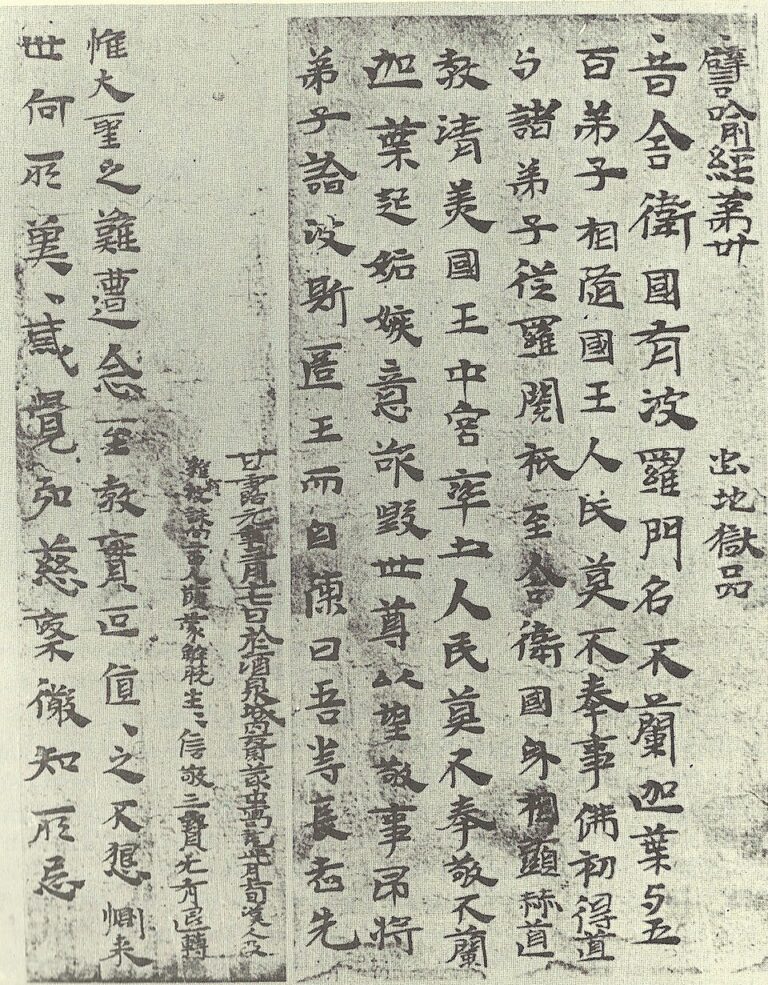 譬喻經第卅 出地獄品
昔舍衛國有波羅門名不蘭迦葉与五
百弟子相隨國王人民莫不奉事佛初得道
与諸弟子從羅閱祇至舍衛國身相顯赫道
教清美國王中宮率土人民莫不奉敬不蘭
迦葉起妬嫉意欲毀世尊以望敬事昂將
弟子詣波斯匿王而自陳曰吾等長老先
甘露元年三月十七日於酒泉城內齋叢中寫訖此月上旬漢人及
雜類被誅向二百人願蒙解脫生、信敬三寶无有退轉
惟大聖之難遭念至教實叵值、之不来
世何所冀、覺知慈徹知所忌